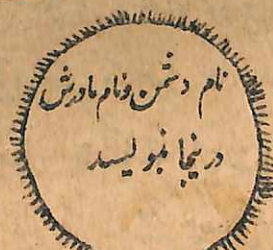 نام دشمن و نام مادرش
درینجا بنویسد